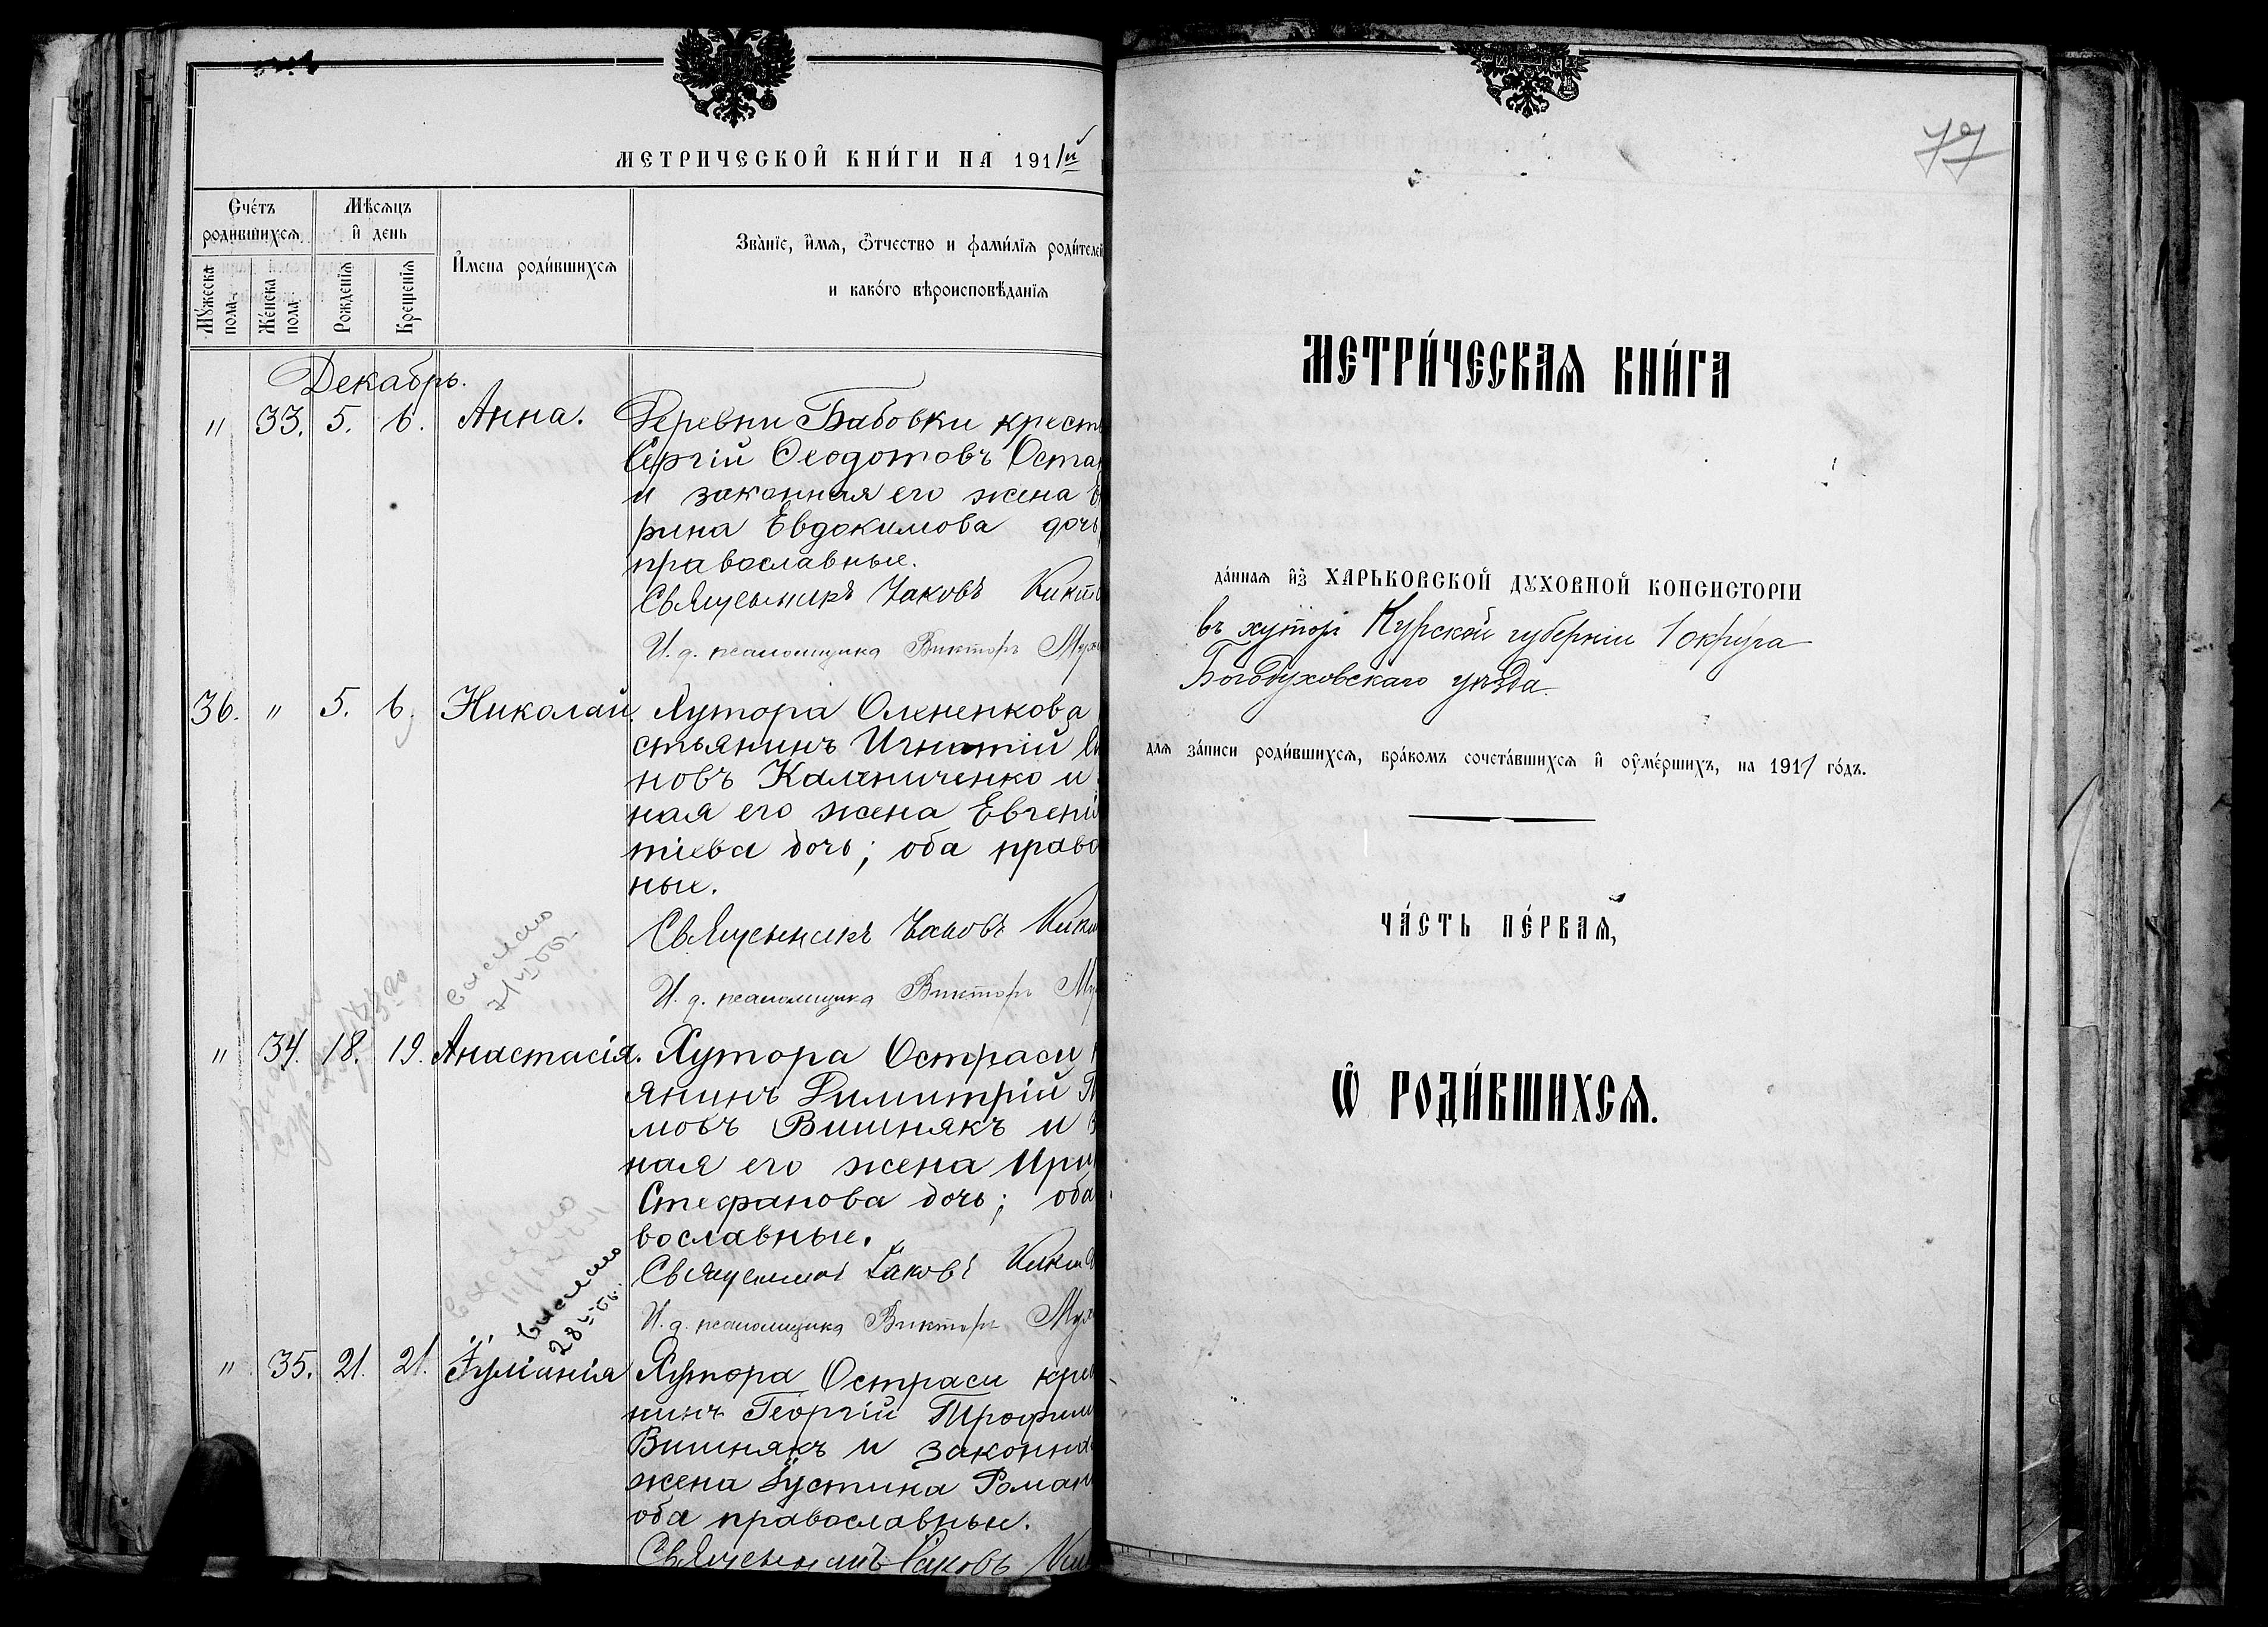 МЕТРИЧЕСКОЙ КНИ́ГИ НА 1911й
Сче́тъ родившихся
Мѣсяцъ и день
Мужеска пола
Же́нска пола
Рожденїя
Крещенїя
И҆мена роди́вшихся
Зва́нїе, и҆́мя, ѻ҆́тчество и фами́лїя роди́телей
и како́го вѣроисповѣ́данїя
Декабрь.
" 33. 5. 6. Анна. Деревни Бабовки крест
Сергій Ѳеодотовъ Оста
и законная его жена
рина Евдокимова дочь
православные.
Священникъ Іаковъ
И. д. псаломщика Викторъ
36. " 5. 6. Николай. Хутора Олененкова
стьянинъ Игнатій
новъ Калениченко и
ная его жена Евгені
тіева дочь; оба право
ные.
Священникъ Іаковъ
И. д. псаломщика Викторъ
" 34. 18. 19. Анастасія. Хутора Остраси
янинъ Димитрій
мовъ Вишнякъ и
ная его жена Ири
Стефанова дочь; оба
вославные.
Священникъ Іаковъ
И. д. псаломщика Викторъ
выслано
" 35. 21. 21. Іуліанія Хутора Остраси кре
нинъ Георгій Трофим
Вишнякъ и законна
жена Іустина Роман
оба православные.
Священникъ Іаковъ
77
МЕТРИ́ЧЕСКАЯ КНИ́ГА
да́нная и҆з̾ ХАРЬКОВСКОЙ ДУХОВНОЙ КОНСИСТОРІИ
въ хуторъ Курской губерніи 1 округа
Богодуховскаго уѣзда
для за́писи роди́вшихся, бра́комъ сочета́вшихся и҆ оу҆ме́ршихъ, на 1911 го́дъ.
ЧА́СТЬ ПЕ́РВАЯ,
Ѽ РОДИ́ВШИХСЯ.